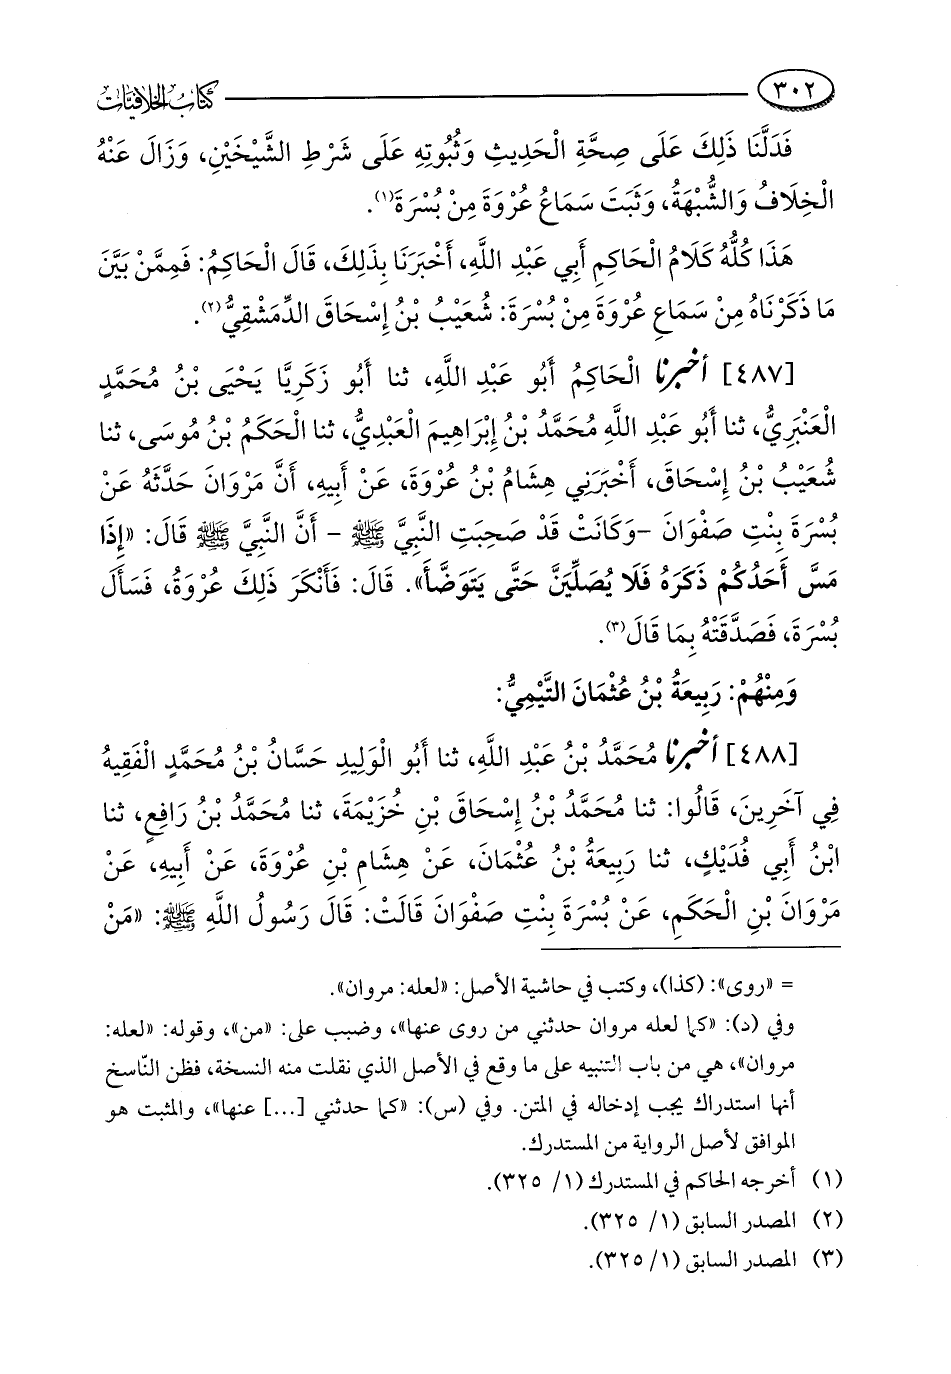 ٣٠٢ كتاب الخلافيات
فَدَلَّنَا ذَلِكَ عَلَى صِحَّةِ الْحَدِيثِ وَثُبُوتِهِ عَلَى شَرْطِ الشَّيْخَيْنِ، وَزَالَ عَنْهُ
الْخِلَافُ وَالشُّبْهَةُ، وَثَبَتَ سَمَاعُ عُرْوَةَ مِنْ بُسْرَةَ(١).
هَذَا كُلُّهُ كَلَامُ الْحَاكِمِ أَبِي عَبْدِ اللَّهِ، أَخْبَرَنَا بِذَلِكَ، قَالَ الْحَاكِمُ: فَمِمَّنْ بَيَّنَ
مَا ذَكَرْنَاهُ مِنْ سَمَاعِ عُرْوَةَ مِنْ بُسْرَةَ: شُعَيْبُ بْنُ إِسْحَاقَ الدِّمَشْقِيُّ(٢).
[٤٨٧] أخبرنا الْحَاكِمُ أَبُو عَبْدِ اللَّهِ، ثنا أَبُو زَكَرِيَّا يَحْيَى بْنُ مُحَمَّدٍ
الْعَنْبَرِيُّ، ثنا أَبُو عَبْدِ اللَّهِ مُحَمَّدُ بْنُ إِبْرَاهِيمَ الْعَبْدِيُّ، ثنا الْحَكَمُ بْنُ مُوسَى، ثنا
شُعَيْبُ بْنُ إِسْحَاقَ، أَخْبَرَنِي هِشَامُ بْنُ عُرْوَةَ، عَنْ أَبِيهِ، أَنَّ مَرْوَانَ حَدَّثَهُ عَنْ
بُسْرَةَ بِنْتِ صَفْوَانَ -وَكَانَتْ قَدْ صَحِبَتِ النَّبِيَّ ﷺ - أَنَّ النَّبِيَّ ﷺ قَالَ: «إِذَا
مَسَّ أَحَدُكُمْ ذَكَرَهُ فَلَا يُصَلِّيَنَّ حَتَّى يَتَوَضَّأَ». قَالَ: فَأَنْكَرَ ذَلِكَ عُرْوَةُ، فَسَأَلَ
بُسْرَةَ، فَصَدَّقَتْهُ بِمَا قَالَ(٣).
وَمِنْهُمْ: رَبِيعَةُ بْنُ عُثْمَانَ التَّيْمِيُّ:
[٤٨٨] أخبرنا مُحَمَّدُ بْنُ عَبْدِ اللَّهِ، ثنا أَبُو الْوَلِيدِ حَسَّانُ بْنُ مُحَمَّدٍ الْفَقِيهُ
فِي آخَرِينَ، قَالُوا: ثنا مُحَمَّدُ بْنُ إِسْحَاقَ بْنِ خُزَيْمَةَ، ثنا مُحَمَّدُ بْنُ رَافِعٍ، ثنا
ابْنُ أَبِي فُدَيْكٍ، ثنا رَبِيعَةُ بْنُ عُثْمَانَ، عَنْ هِشَامِ بْنِ عُرْوَةَ، عَنْ أَبِيهِ، عَنْ
مَرْوَانَ بْنِ الْحَكَمِ، عَنْ بُسْرَةَ بِنْتِ صَفْوَانَ قَالَتْ: قَالَ رَسُولُ اللَّهِ ﷺ: «مَنْ
= «روى»: (كذا)، وكتب في حاشية الأصل: «لعله: مروان».
وفي (د): «كما لعله مروان حدثني من روى عنها»، وضبب على: «من»، وقوله: «لعله:
مروان»، هي من باب التنبيه على ما وقع في الأصل الذي نقلت منه النسخة، فظن النّاسخ
أنها استدراك يجب إدخاله في المتن. وفي (س): «كما حدثني [...] عنها»، والمثبت هو
الموافق لأصل الرواية من المستدرك.
(١) أخرجه الحاكم في المستدرك (١/ ٣٢٥).
(٢) المصدر السابق (١/ ٣٢٥).
(٣) المصدر السابق (١/ ٣٢٥).